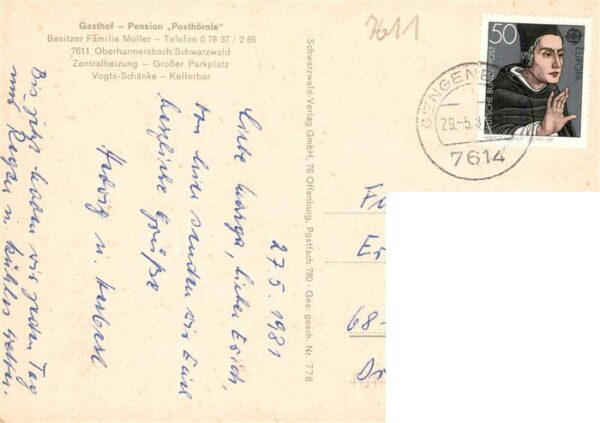 Gasthof – Pension „Posthörnle"
Besitzer Familie Müller – Telefon 0 78 37 / 2 85
7611 Oberharmersbach/Schwarzwald
Zentralheizung – Großer Parkplatz
Vogts-Schänke – Kellerbar
7611
50
DEUTSCHE BUNDESPOST
EUROPA
GENGENB
29.-5.8
7614
Schwarzwald-Verlag GmbH, 76 Offenburg, Postfach 780 · Ges. gesch. Nr. 778
27.5.1981
Liebe Marga, lieber Erich,
von hier senden wir Euch
herzliche Grüße
Hedwig u. Herbert
Bis jetzt haben wir jeden Tag
nur Regen u. kühles Wetter.
Er
68-